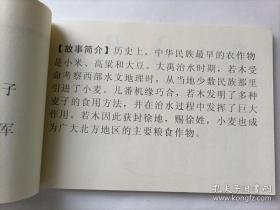 【故事简介】历史上，中华民族最早的农作物
是小米、高粱和大豆。大禹治水时期，若木受
命考察西部水文地理时，从当地少数民族那里
引进了小麦。几番机缘巧合，若木发明了多种
麦子的食用方法，并在治水过程中发挥了巨大
作用。若木因此获封徐地，赐徐姓，小麦也成
为广大北方地区的主要粮食作物。
子
军